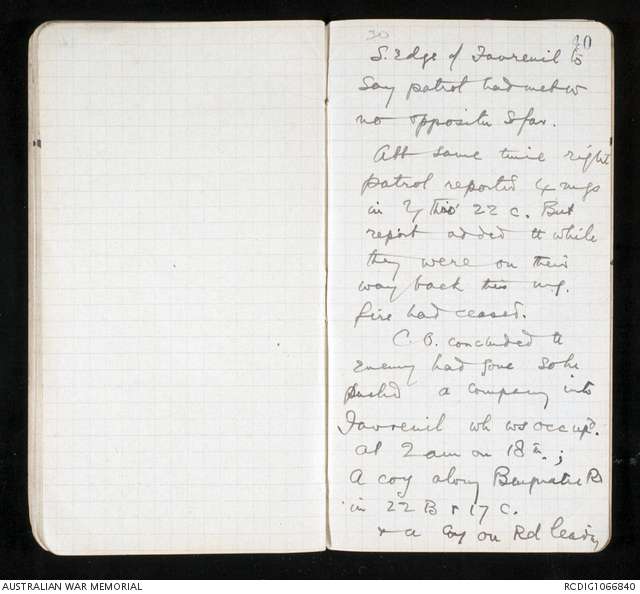 30
40
S. Edge of Favreuil to
say patrol had met w
no oppositn so far.
Abt same time right
patrol reported 4 mgs
in 22 c. But
report added tt while
they were on their
way back this m.g.
fire had ceased.
C.O. concluded tt
enemy had gone so he
pushed a company into
Favreuil wh ws occupd.
at 2 am on 18th.;
A coy along Beugnatre Rd
in 22 B & 17 C.
& a coy on Rd leading
AUSTRALIAN WAR MEMORIAL
RCDIG1066840